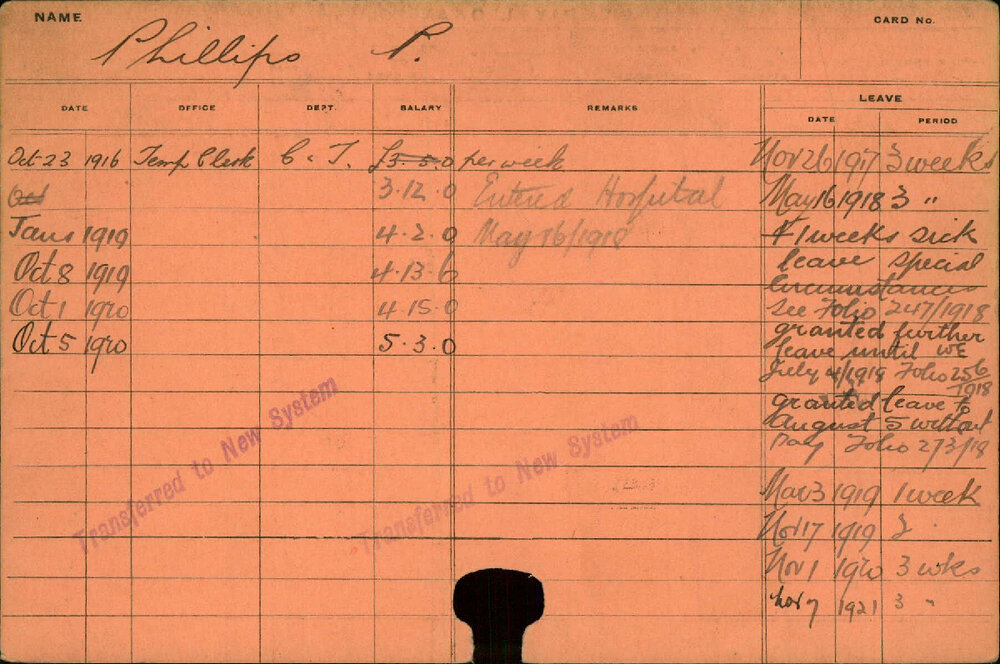 NAME
CARD No.
Phillips P.
DATE OFFICE DEPT. SALARY REMARKS LEAVE
DATE PERIOD
Oct 23 1916 Temp Clerk C. T. £3.5.0 per week Nov 26 1917 3 weeks
Oct 3.12.0 Entered Hospital May 16 1918 3 "
1919 4.2.0 May 16/1918 weeks sick
Oct 8 1919 4.13.6 leave special
circumstances
Oct 1 1920 4.15.0 see Folio 247/1918
granted further
Oct 5 1920 5.3.0 leave until WE
July 4/1918 Folio 256/1918
granted leave to
August 5 without
Pay Folio 273/18
Transferred to New System
Transferred to New System
Mar 3 1919 1 week
Nov 17 1919
Nov 1 1920 3 wks
Nov 7 1921 3 "